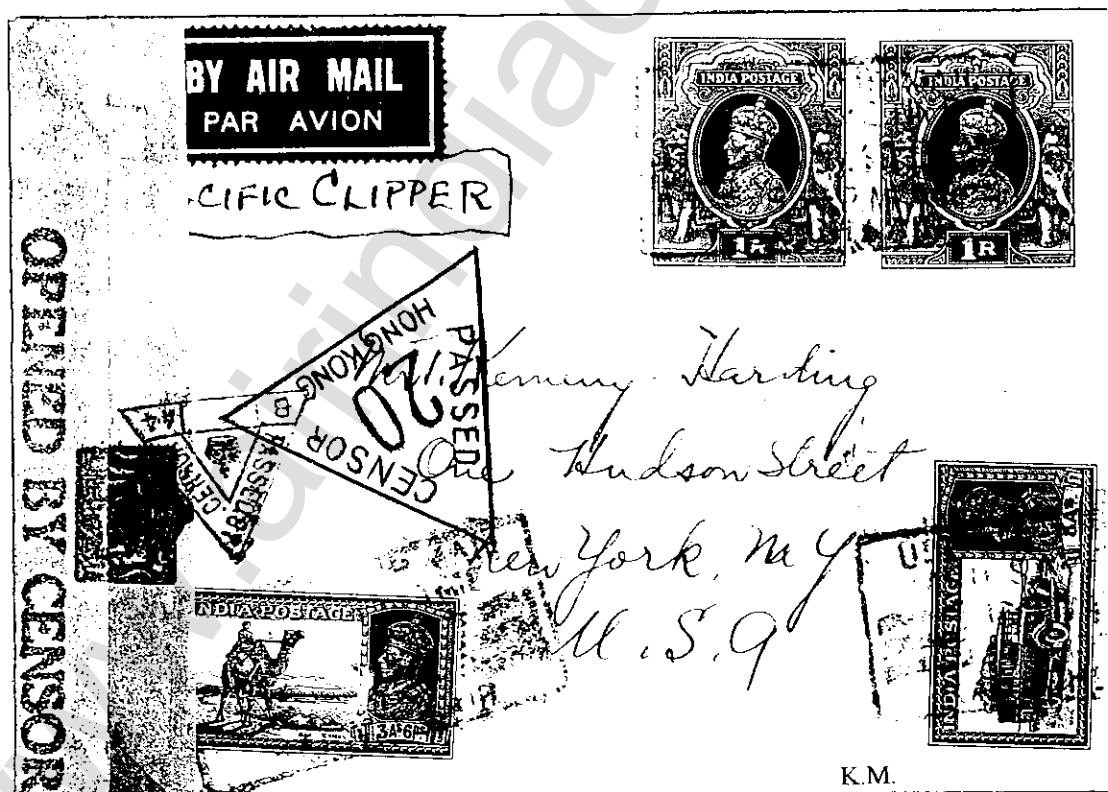 BY AIR MAIL
PAR AVION
CIFIC CLIPPER
INDIA POSTAGE
1R
INDIA POSTAGE
1R
OPENED BY CENSOR
PASSED
CENSOR
HONG KONG
20
PASSED
44
B
Harding
One Hudson Street
New York, N Y
U.S.A
INDIA POSTAGE
3As6P
INDIA POSTAGE
8As
K.M.